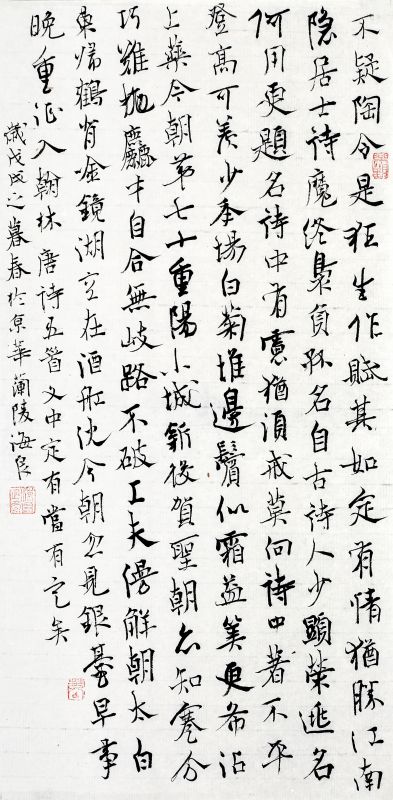 不疑陶令是狂生作賦其如定有情猶勝江南
隐居士詩魔終裊負孤名自古詩人少顯榮逃名
何用更題名詩中有慮猶須戒莫向詩中著不平
登高可羡少年場白菊堆邊鬢似霜益算更希沾
上藥今朝第七十重陽小城新後賀聖朝知蹇分
巧難抛麤才自合無岐路不破工夫漫解朝太白
東歸鶴背吟鏡湖空在酒舡沈今朝忽見銀臺早事
晚重徵入翰林唐詩五首文中定有當有定矣
歲戊戌之暮春於京華蘭陵海良